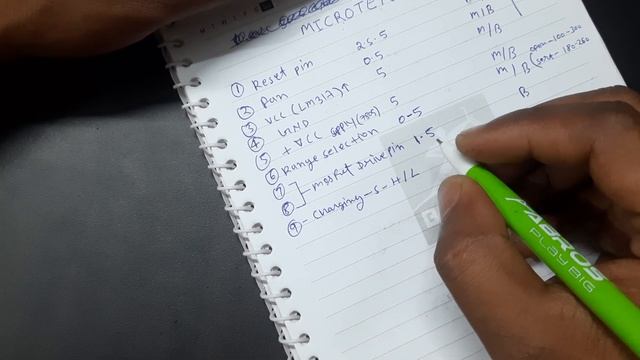 MICROTE
M/B
① Reset pin 25.5 M/B
② Pan 0.5 M/B
③ VCC (LM317)↑ 5 M/B
④ GND M/B
⑤ + VCC apply (7805) 5 B
⑥ Range selection 0-5
⑦
⑧ mosfet Drive pin 1.5
⑨ - Charging - S - H/L
open-100-300
180-260
FABROS
PLAY BIG